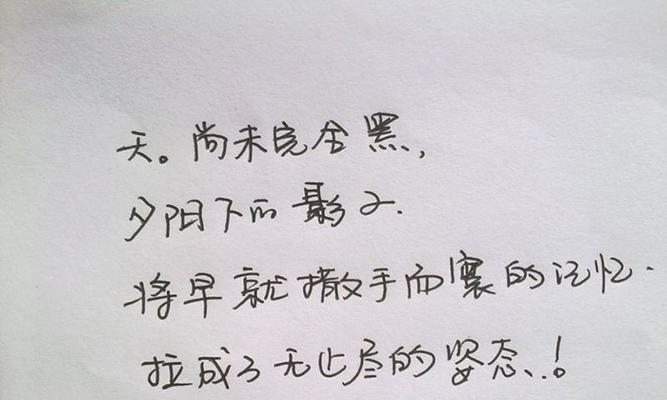 天。尚未完全黑，
夕阳下的影子.
将早就撒手而寰的记忆.
拉成了无止尽的姿态..!